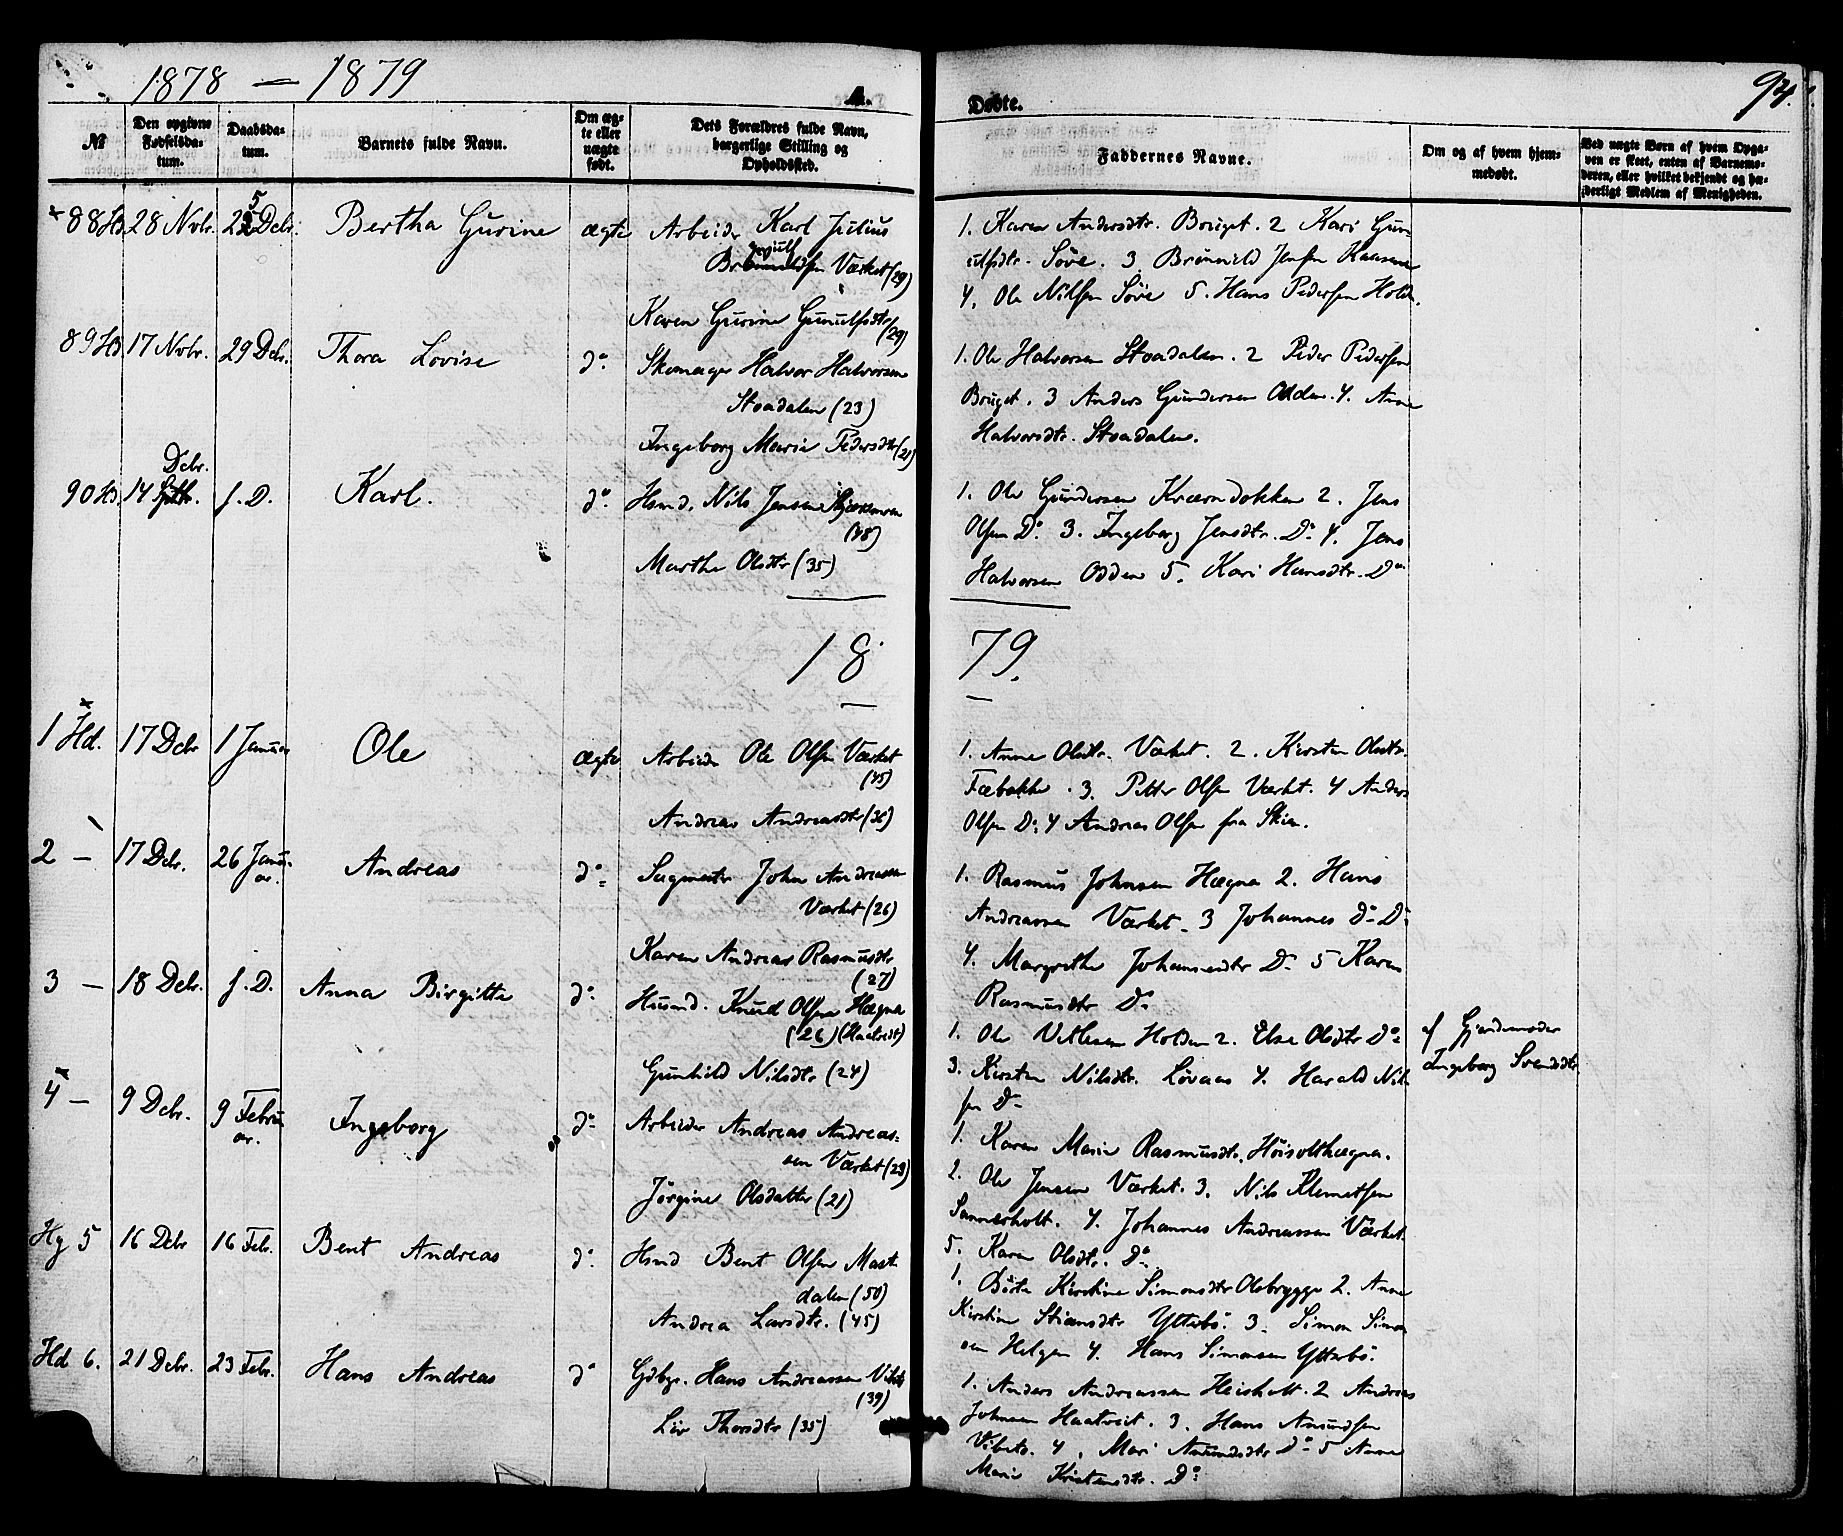 1878 — 1879
A.
Døbte.
94.
№
Den opgivne Fødselsdatum.
Daabsdatum.
Barnets fulde Navn.
Om ægte eller uægte født.
Dets Forældres fulde Navn, borgerlige Stilling og Opholdssted.
Faddernes Navne.
Om og af hvem hjemmedøbt.
Ved uægte Børn af hvem Opgaven er skeet, enten af Barnemoderen, eller hvilket bekjendt og hæderligt Medlem af Menigheden.
88 Hd. 28 Novbr. 25 Decbr. Bertha Gurine ægte Arbeider Karl Julius
Værket (29)
Karen Gurine Gunulfsdtr (29)
1. Karen Andersdtr. Bruget. 2 Kari Gun-
ulfsdtr. Søve. 3 Brynnild Jensen Kaasene
4. Ole Nilsen Søve 5. Hans Pedersen Holda.
89 Hd. 17 Novbr. 29 Decbr. Thora Lovise do. Skomager Halvor Halvorsen
Stoadalen (23)
Ingeborg Maria Pedersdtr (21)
1. Ole Halvorsen Stoadalen. 2 Peder Pedersen
Bruget. 3 Anders Gundersen Odden. 4. Anne
Halvorsdtr. Stoadalen.
Decbr.
90 Hd. 14 f. D. Karl. do. Hsmd. Nils Jensen
(48)
Marthe Olsdtr (35)
1. Ole Gundersen Kværndokken 2. Jens
Olsen Do. 3. Ingeborg Jensdtr. Do. 4. Jens
Halvorsen Odden 5. Kari Hansdtr. Do
18 79.
1 Hd. 17 Decbr 1 Januar Ole ægte Arbeider Ole Olsen Værket
(45)
Andrea Andreasdtr (36)
1. Anne Olsdtr. Værket. 2. Kirsten Olsdtr.
Fæbakke. 3. Petter Olsen Værket. 4 Anders
Olsen Do. 4 Andreas Olsen fra Skien.
2 — 17 Decbr. 26 Janu-
ar. Andreas do. Sagmester John Andreassen
Værket (26)
Karen Andrea Rasmusdtr
(27)
1. Rasmus Johnsen Hægna 2. Hans
Andreassen Værket. 3 Johannes Do. Do.
4. Margrethe Johannesdtr Do. 5 Karen
Rasmusdtr Do.
3 — 18 Decbr. f. D. Anna Birgitte do. Husmd. Knud Olsen Hægna
(26) (Haatveit)
Gunhild Nilsdtr (24)
1. Ole Vetlesen Holden 2. Else Olsdtr Do.
3. Kirsten Nilsdtr. Løvaas 4. Harald Nil-
sen Do.
af Gjordemoder
Ingeborg Svendsdtr
4 — 9 Decbr. 9 Febru-
ar. Ingeborg do. Arbeider Andreas Andreas-
sen Værket (23)
Jørgine Olsdatter (21)
1. Karen Marie Rasmusdtr. Høisetthægna.
2. Ole Jensen Værket. 3. Nils Klemetsen
Sannerholt. 4. Johannes Andreassen Værket.
5. Karen Olsdtr. Do.
Hg 5 16 Decbr 16 Feb. Bent Andreas do. Hsmd Bent Olsen Mast-
dalen (50)
Andrea Larsdtr. (45)
1. Birte Kirstine Simonsdtr Olsbrygge 2. Anne
Kirstine Stiansdtr Yttebø. 3. Simon Simon-
sen Helgen 4. Hans Simonsen Yttebø.
Hd 6. 21 Decbr. 23 Febr. Hans Andreas do Gdbgr. Hans Andreassen Vibeto
(39)
Liv Thorsdtr (35)
1. Anders Andreassen Heisholt. 2 Andreas
Johnsen Haatveit. 3. Hans Amundsen
Vibeto. 4. Mari Amundsdtr Do. 5 Anne
Marie Kristensdtr. Do.